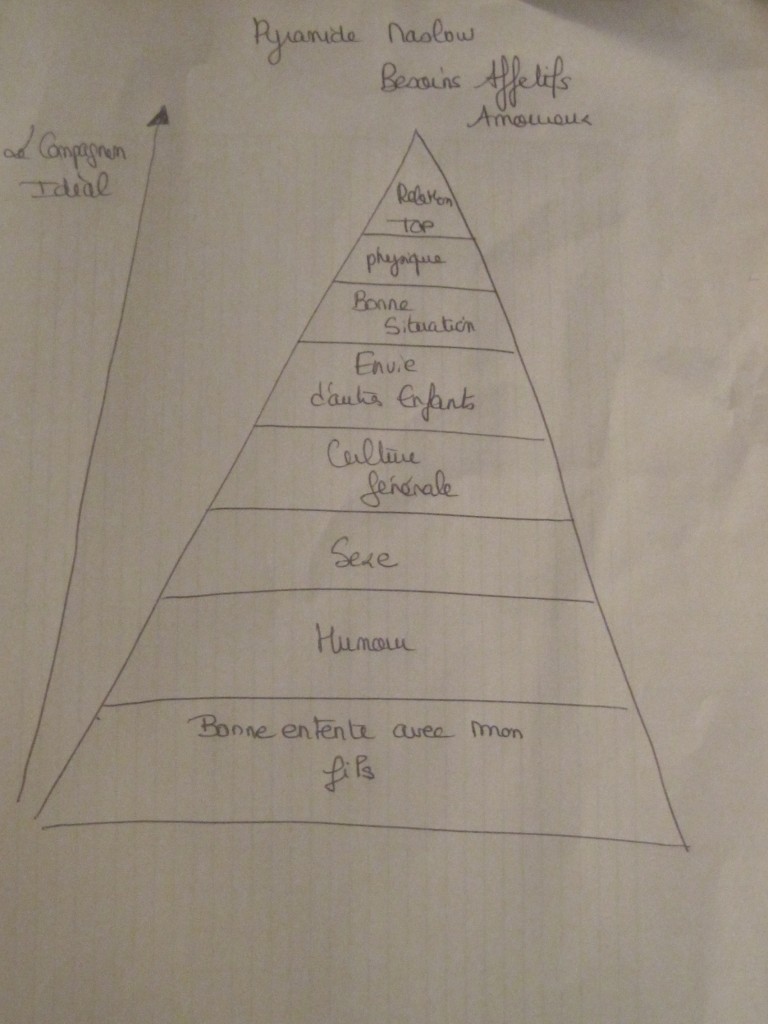 Pyramide Maslow
Besoins Affetifs
Amoureux
Compagnon
Idéal
Relation
TOP
physique
Bonne
Situation
Envie
d'autres Enfants
Culture
générale
Sexe
Humour
Bonne entente avec mon
fils